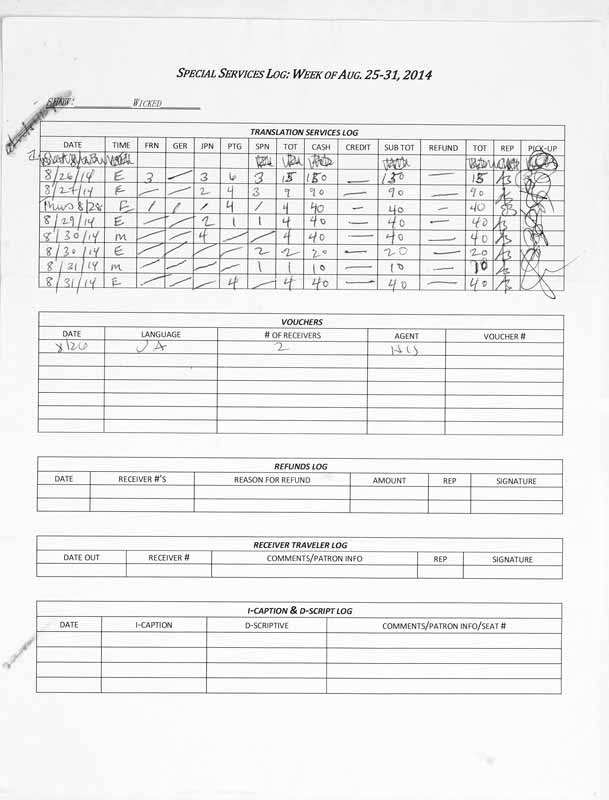 SPECIAL SERVICES LOG: WEEK OF AUG. 25-31, 2014
SHOW: WICKED
TRANSLATION SERVICES LOG
DATE TIME FRN GER JPN PTG SPN TOT CASH CREDIT SUB TOT REFUND TOT REP PICK-UP
8/26/14 E 3 — 3 6 3 15 150 — 150 — 15
8/27/14 E — — 2 4 3 9 90 — 90 — 90
Thurs 8/28 E / / / 4 / 4 40 — 40 — 40
8/29/14 E — — 2 1 1 4 40 — 40 — 40
8/30/14 M — — 4 — — 4 40 — 40 — 40
8/30/14 E — — — — 2 2 20 — 20 — 20
8/31/14 M — — — — 1 1 10 — 10 — 10
8/31/14 E — — — 4 — 4 40 — 40 — 40
VOUCHERS
DATE LANGUAGE # OF RECEIVERS AGENT VOUCHER #
8/26 JA 2 HIS
REFUNDS LOG
DATE RECEIVER #'S REASON FOR REFUND AMOUNT REP SIGNATURE
RECEIVER TRAVELER LOG
DATE OUT RECEIVER # COMMENTS/PATRON INFO REP SIGNATURE
I-CAPTION & D-SCRIPT LOG
DATE I-CAPTION D-SCRIPTIVE COMMENTS/PATRON INFO/SEAT #